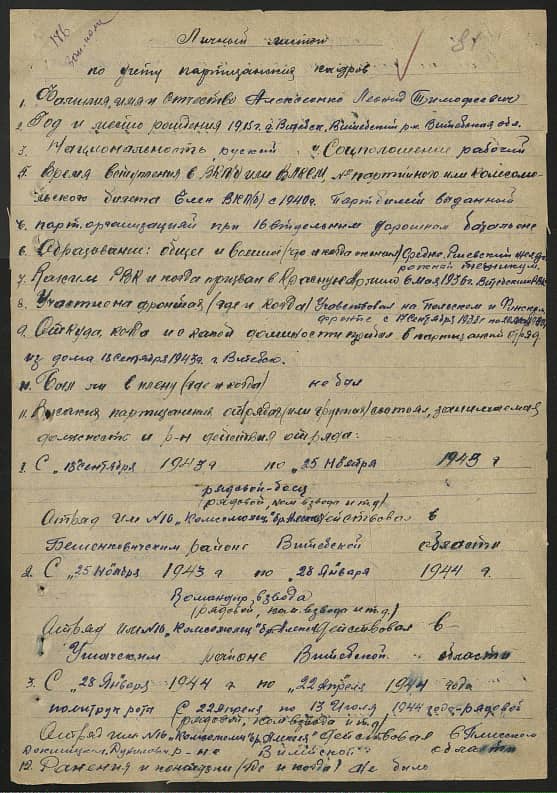 186
Личный листок
по учету партизанских кадров
1. Фамилия, имя и отчество Алексеенко Леонид Тимофеевич
2. Год и место рождения 1915 г. г. Витебск, Витебский р-н Витебская обл.
3. Национальность руский 4. Соцположение рабочий
5. Время вступления в ВКП(б) или ВЛКСМ, № партийного или комсомо-
льского билета Член ВКП(б) с 1940 г. Партбилет выданный
парт. организацией при 16 отдельном дорожном батальоне
6. Образование: общее и военное (где и когда окончил) Среднее. Ржевский
техникум.
7. Каким РВК и когда призван в Красную Армию 6 мая 1936 г. Витебский РВК
8. Участие на фронтах (где и когда) Участвовал на Польском и Финском
фронте с 17 сентября 1939 г. по
9. Откуда, когда и с какой должности прибыл в партизанский отряд
из дома 18 сентября 1943 г. г. Витебск.
10. Был ли в плену (где и когда) не был
11. В каких партизанских отрядах (или группах) состоял, занимаемая
должность и р-н действия отряда:
1. С "18 сентября 1943 г по "25 Ноября 1943 г
рядовой-боец
(рядовой, ком. взвода и т.д.)
Отряд им № 16 "Комсомолец" бр. Алексея действовал в
Бешенковичском районе Витебской области
2. С "25 Ноября 1943 г по "28 Января 1944 г.
Командир взвода
(рядовой, ком. взвода и т.д.)
Отряд им № 16 "Комсомолец" бр. Алексея действовал в
Ушачском районе Витебской области
3. С "28 Января 1944 г по "22 апреля 1944 года
политрук рота с 22 апреля по 13 Июля 1944 года-рядовой
(рядовой, ком взвода и т.д.)
Отряд им № 16 "Комсомолец" бр "Алексея" действовал в
р-не Вилейской области
12. Ранения и контузии (где и когда) Не было